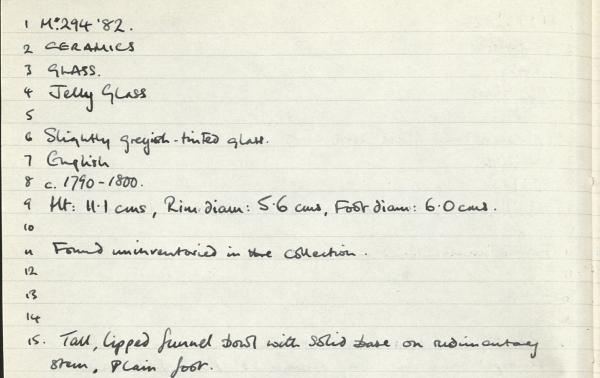 1 M:294 '82.
2 CERAMICS
3 GLASS.
4 Jelly Glass
5
6 Slightly greyish-tinted glass.
7 English
8 c. 1790-1800.
9 Ht: 11·1 cms, Rim diam: 5·6 cms, Foot diam: 6·0 cms.
10
11 Found uninventoried in the collection.
12
13
14
15. Tall, lipped funnel bowl with solid base on rudimentary
stem, Plain foot.